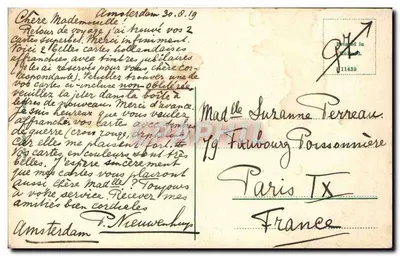 Amsterdam 30.8.19
Chère Mademoiselle!
Retour de voyage j'ai trouvé vos 2
cartes superbes. Merci infiniment.
Voici 2 belles cartes hollandaises
affranchies avec timbres jubilaires
(que j'ai réservé pour vous chère cor-
respondante). Veuillez trouver une de
vos cartes ci-incluse non oblitérée
veuillez la jeter dans la boîte à
lettres de nouveau. Merci d'avance.
Je suis heureux que vous voulez
affranchir vos cartes avec
de guerre (croix rouge,
Car elles me plaisent fort.
Vos cartes en couleurs sont très
belles. J'espère sincèrement
que mes cartes vous plairont
aussi chère Madlle? Toujours
à votre service. Recevez mes
amitiés bien cordiales
P. Nieuwenhuys
Amsterdam
11439
Madlle Suzanne Perreau
79 Faubourg Poissonnière
Paris IX
France